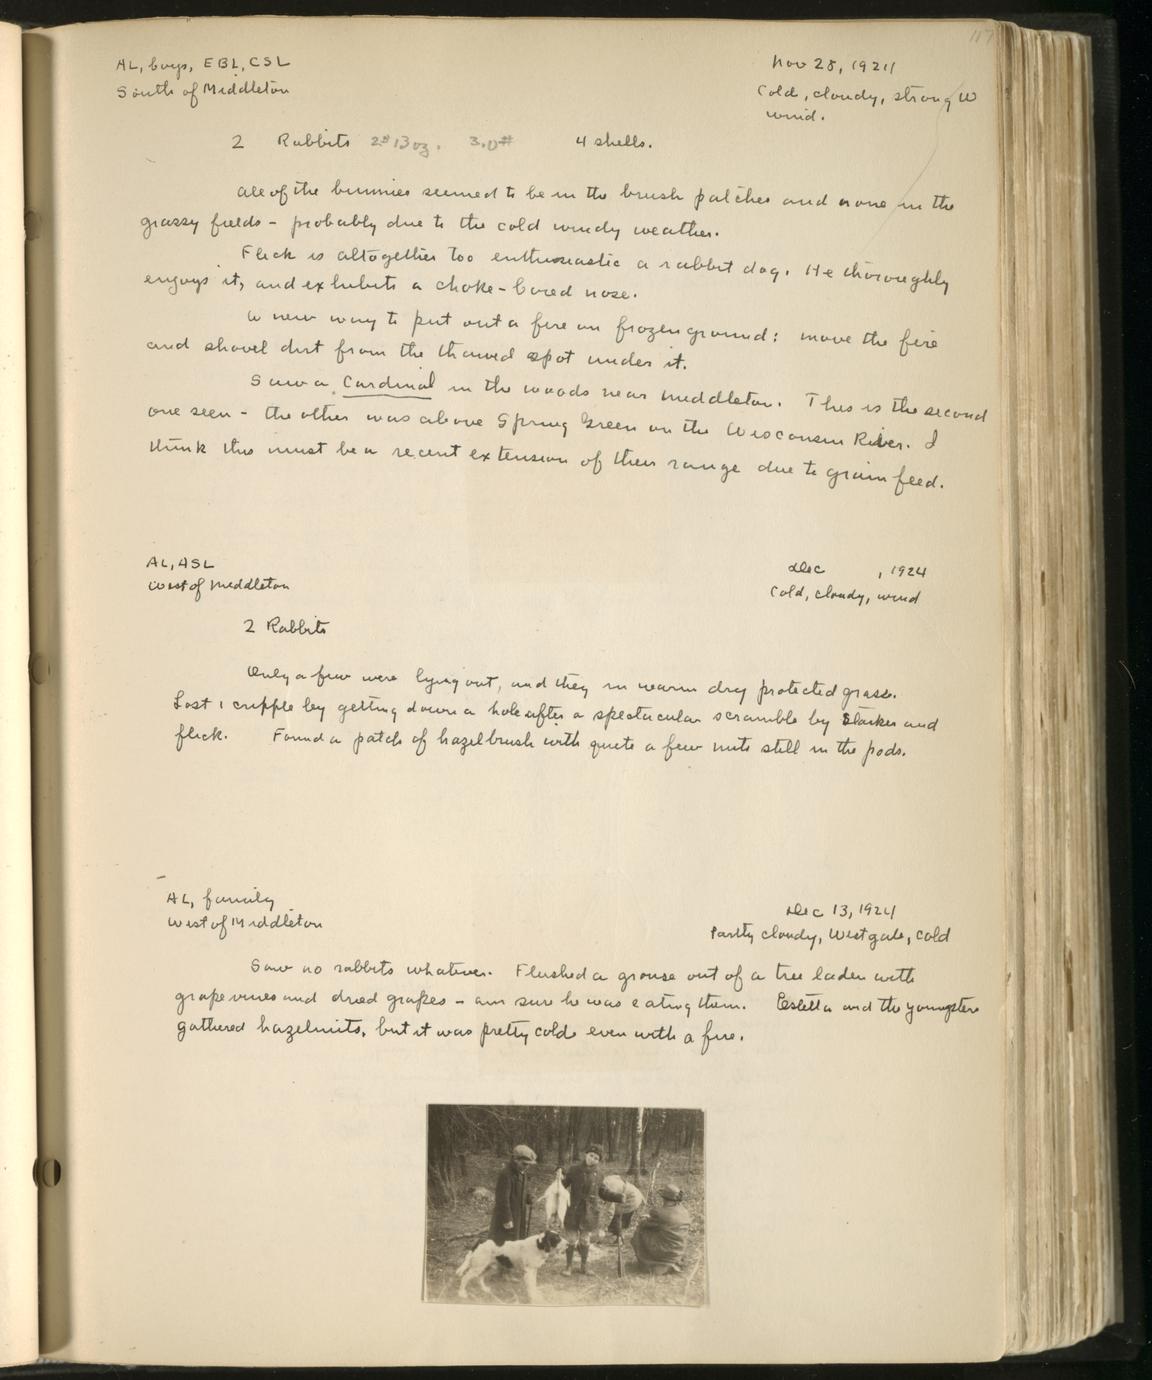 117
AL, boys, EBL, CSL
Nov 28, 1924
South of Middleton
Cold, cloudy, strong W
wind.
2 Rabbits 2# 13 oz. 3.0# 4 shells.
All of the bunnies seemed to be in the brush patches and none in the
grassy fields - probably due to the cold windy weather.
Flick is altogether too enthusiastic a rabbit dog. He thoroughly
enjoys it, and exhibits a choke-bored nose.
A new way to put out a fire on frozen ground: move the fire
and shovel dirt from the thawed spot under it.
Saw a Cardinal in the woods near Middleton. This is the second
one seen - the other was above Spring Green on the Wisconsin River. I
think this must be a recent extension of their range due to grain feed.
AL, ASL
Dec , 1924
West of Middleton
Cold, cloudy, wind
2 Rabbits
Only a few were lying out, and they in warm dry protected grass.
Lost 1 cripple by getting down a hole after a spectacular scramble by Starker and
flick. Found a patch of hazelbrush with quite a few nuts still in the pods.
AL, family
Dec 13, 1924
West of Middleton
Partly cloudy, West gale, cold
Saw no rabbits whatever. Flushed a grouse out of a tree laden with
grapevines and dried grapes - am sure he was eating them. Estella and the youngsters
gathered hazelnuts, but it was pretty cold even with a fire.